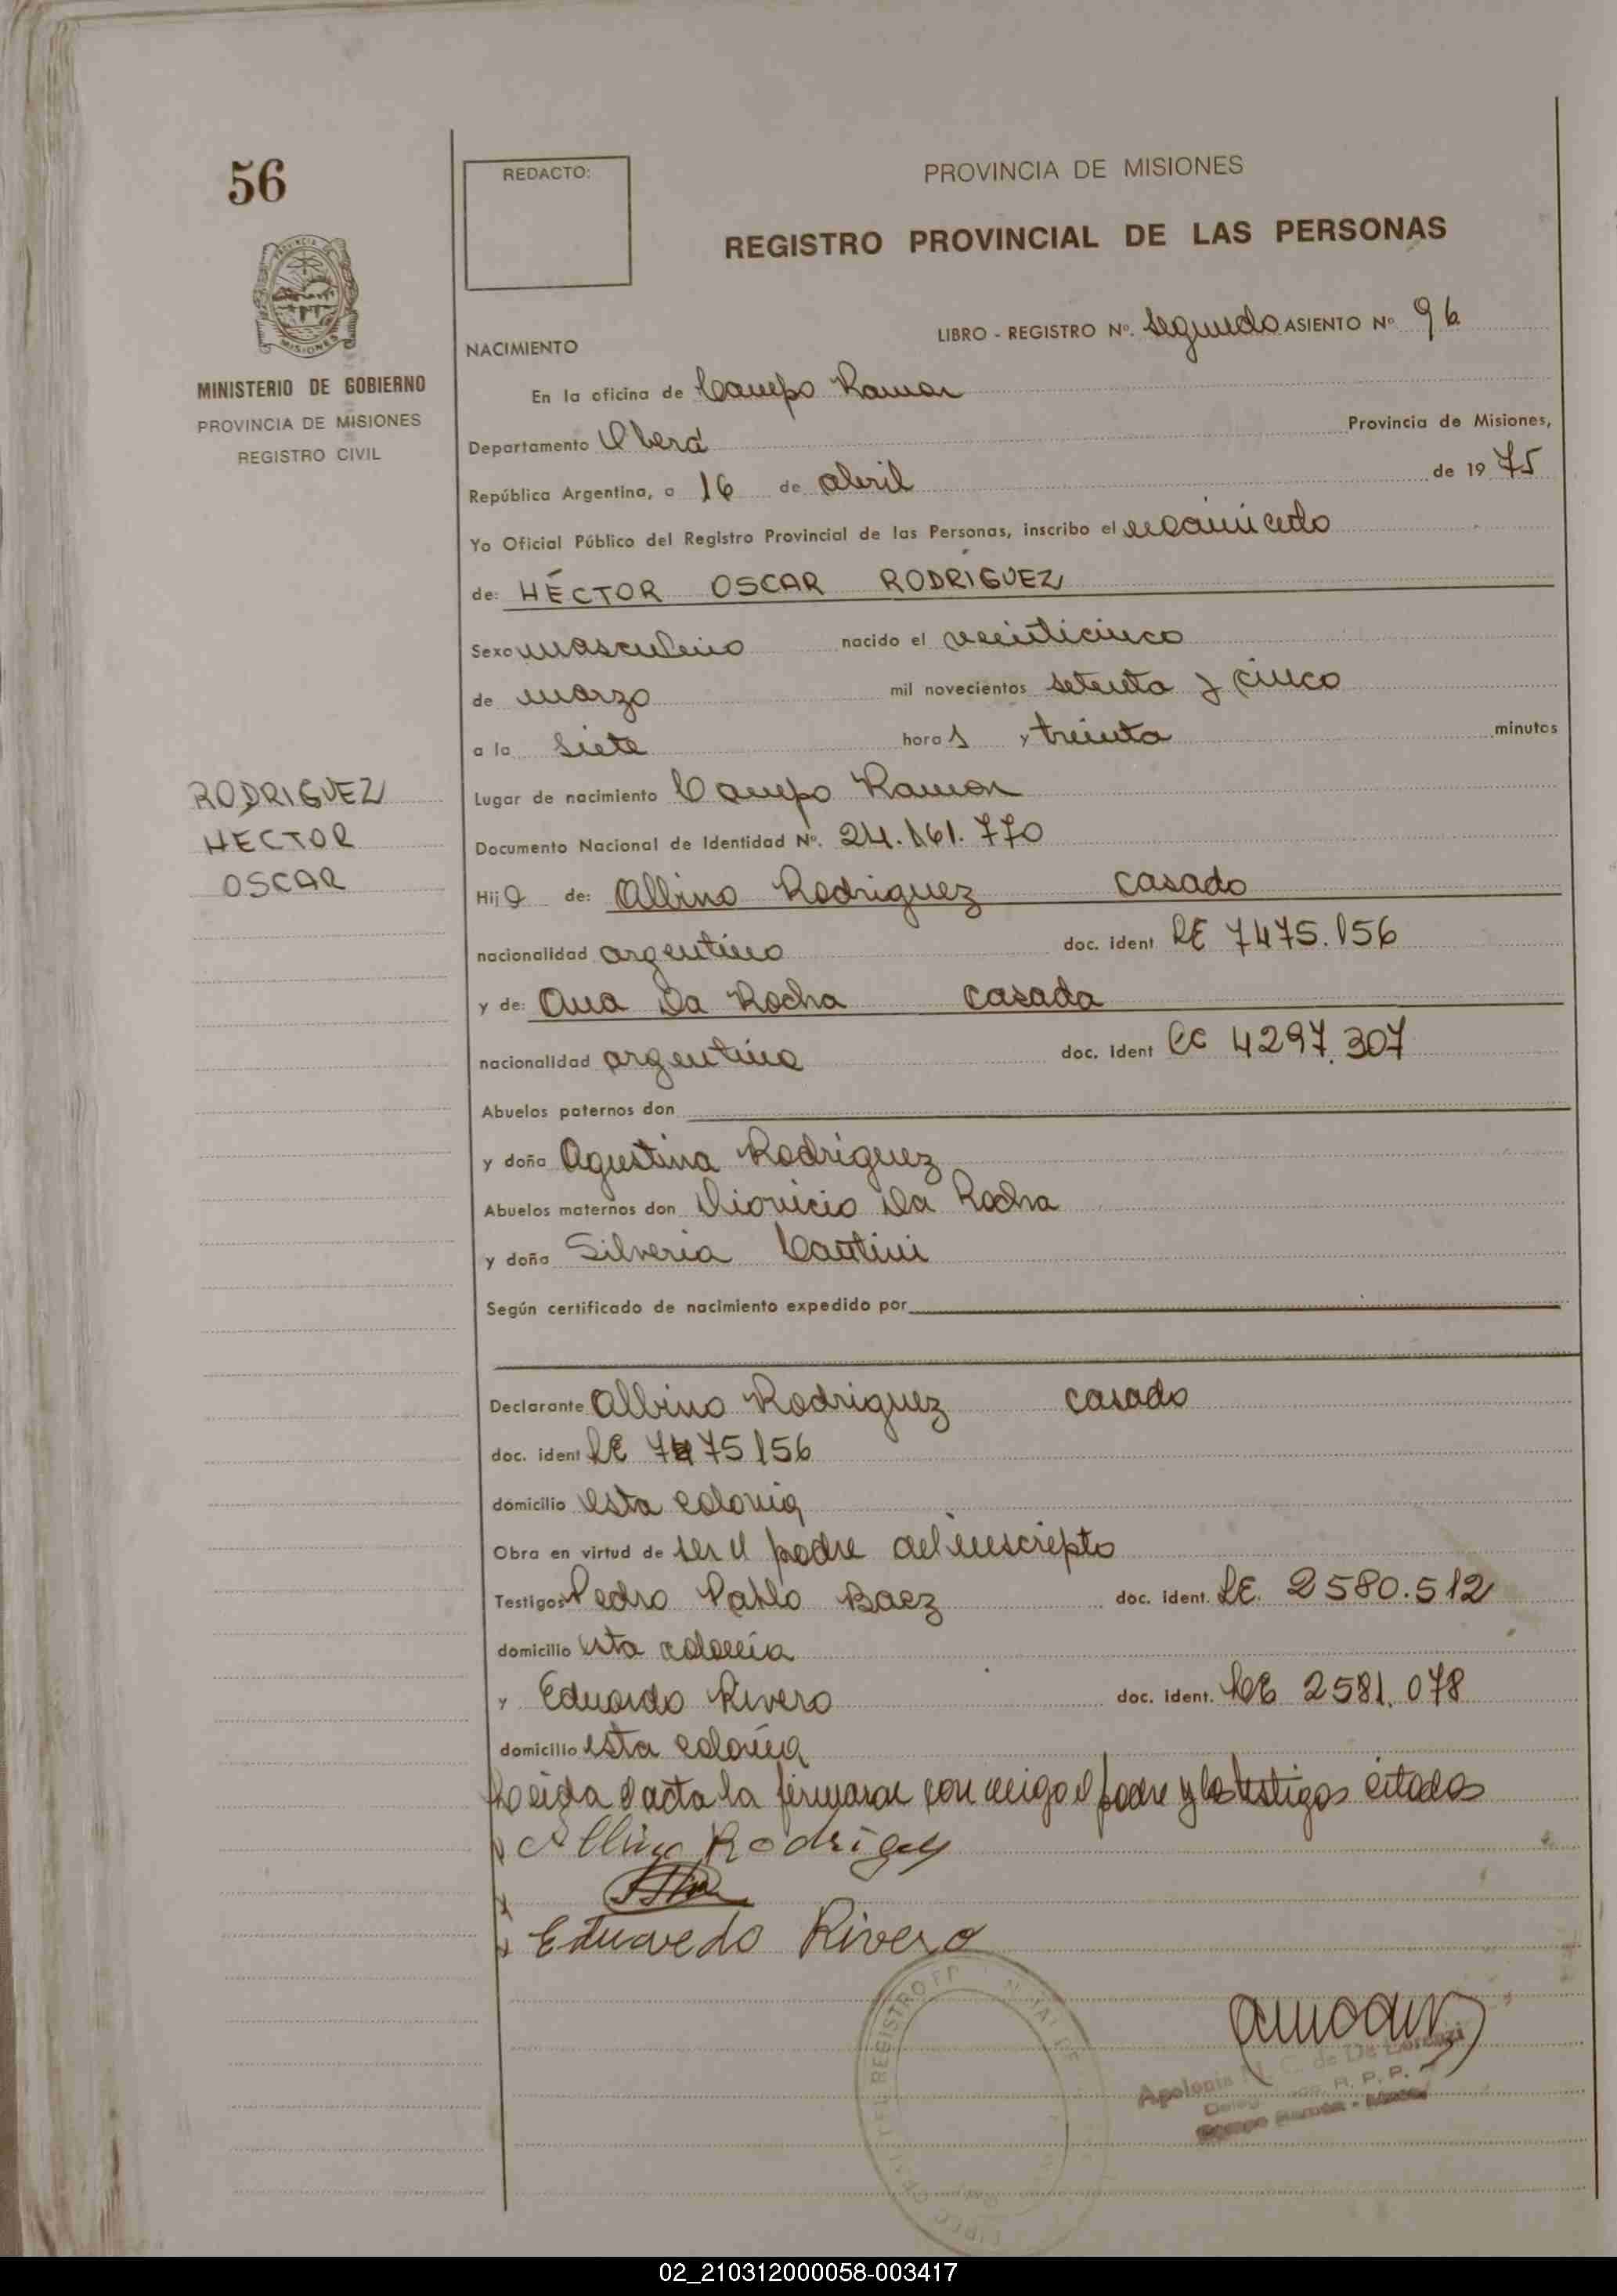 56
MINISTERIO DE GOBIERNO
PROVINCIA DE MISIONES
REGISTRO CIVIL
RODRIGUEZ
HECTOR
OSCAR
REDACTO:
PROVINCIA DE MISIONES
REGISTRO PROVINCIAL DE LAS PERSONAS
LIBRO - REGISTRO Nº. Segundo ASIENTO Nº 96
NACIMIENTO
En la oficina de Campo Ramon
Departamento Oberá Provincia de Misiones,
República Argentina, a 16 de abril de 1975
Yo Oficial Público del Registro Provincial de las Personas, inscribo el
de: HÉCTOR OSCAR RODRIGUEZ
Sexo masculino nacido el veinticinco
de marzo mil novecientos setenta y cinco
a la siete horas y treinta minutos
Lugar de nacimiento Campo Ramon
Documento Nacional de Identidad Nº. 24.161.770
Hijo de: Albino Rodriguez casado
nacionalidad argentino doc. ident LE 7475.156
y de: Ana Da Rocha casada
nacionalidad argentina doc. ident LC 4297.307
Abuelos paternos don
y doña Agustina Rodriguez
Abuelos maternos don Dionicio Da Rocha
y doña Silveria
Según certificado de nacimiento expedido por
Declarante Albino Rodriguez casado
doc. ident LE 7475156
domicilio esta colonia
Obra en virtud de ser el padre del inscripto
Testigos Pedro Pablo Baez doc. ident. LE. 2580.512
domicilio esta colonia
y Eduardo Rivero doc. ident. LE 2581.078
domicilio esta colonia
Leida el acta la firmaran con migo el padre y los testigos citados
Albino Rodriguez
Eduardo Rivero
Apolonia N. C. de De Lorenzi
R. P. P.
Campo Ramón - Mnes.
02_210312000058-003417